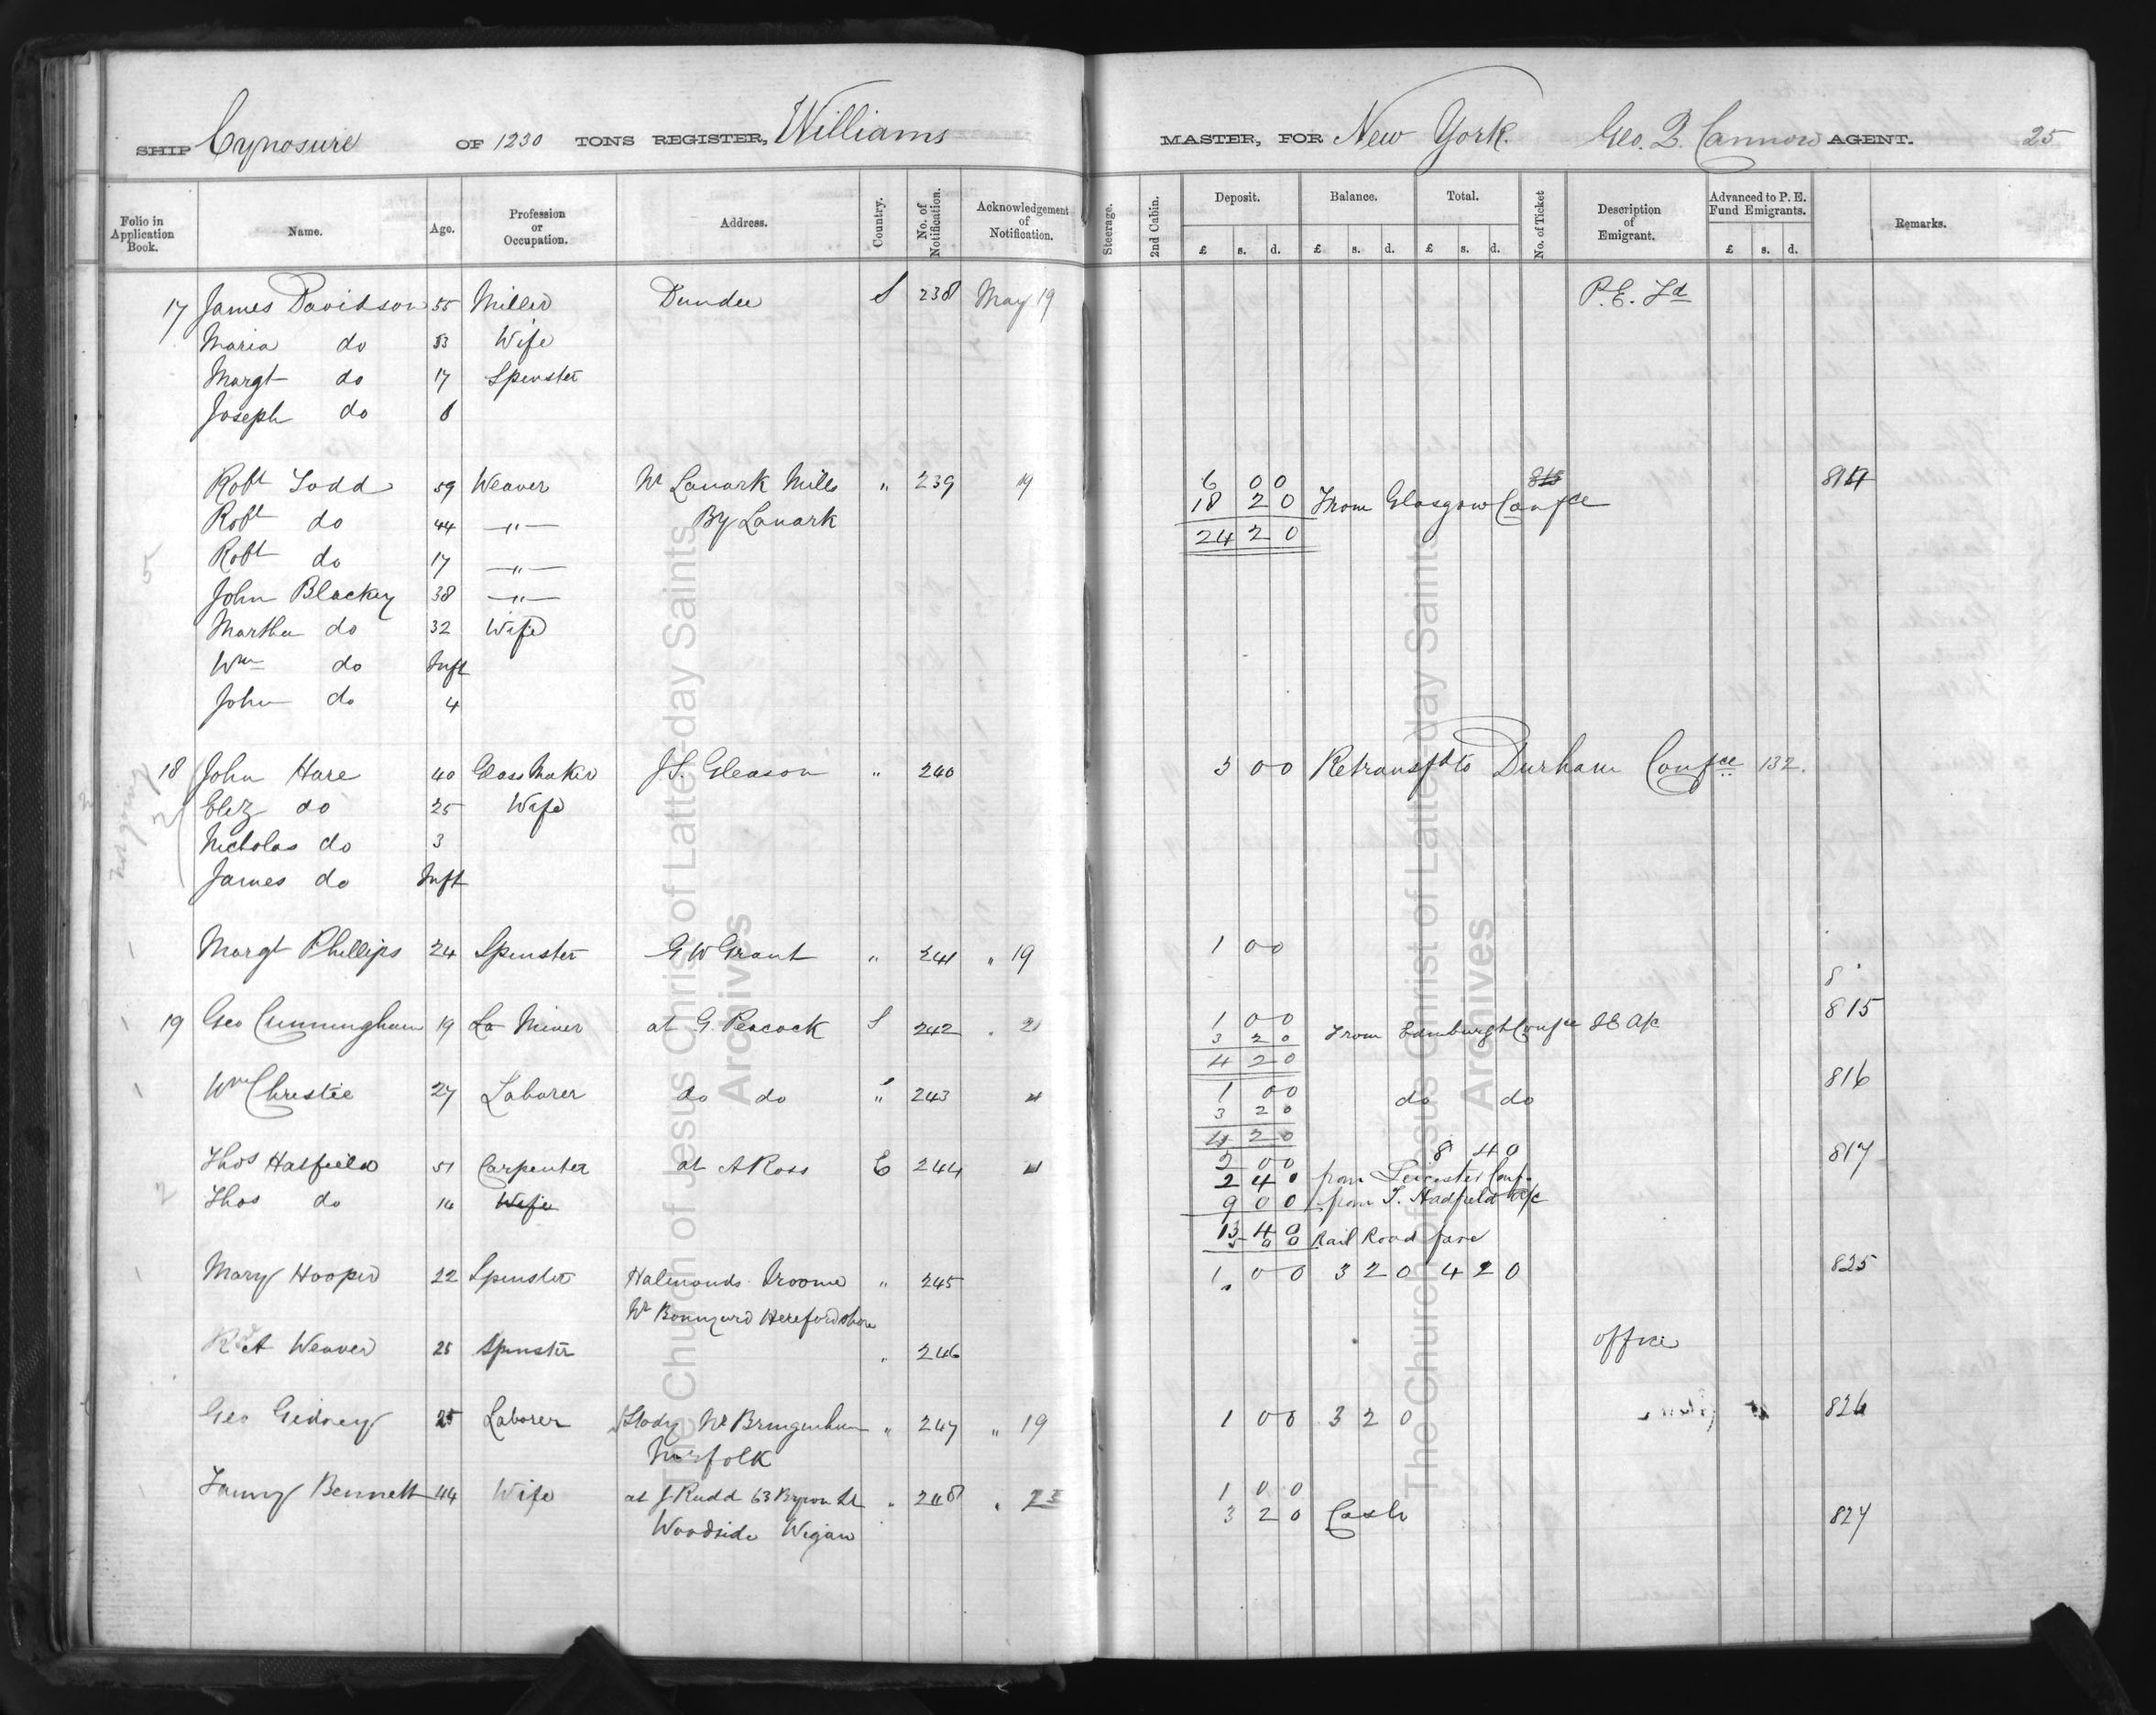 SHIP Cynosure OF 1230 TONS REGISTER, Williams MASTER, FOR New York. Geo. Q. Cannon AGENT. 25
Folio in Application Book. Name. Age. Profession or Occupation. Address. Country. No. of Notification. Acknowledgement of Notification. Steerage. 2nd Cabin. Deposit. £ s. d. Balance. £ s. d. Total. £ s. d. No. of Ticket Description of Emigrant. Advanced to P. E. Fund Emigrants. £ s. d. Remarks.
17 James Davidson 55 Miller Dundee S 238 May 19 P.E. Fd
Maria do 53 Wife
Margt do 17 Spinster
Joseph do 8
Robt Todd 59 Weaver Nr Lanark Mills " 239 19 6 0 0 814
Robt do 44 —"— By Lanark 18 2 0 From Glasgow Confce
24 2 0
Robt do 17 —"—
John Blackey 38 —"—
Martha do 32 Wife
Wm do Inft
John do 4
18 John Hare 40 Glass Maker J.S. Gleason " 240 3 0 0 Retransfd to Durham Confce 132.
Eliz do 25 Wife
Nicholas do 3
James do Inft
Margt Phillips 24 Spinster G W Grant " 241 " 19 1 0 0
8
19 Geo Cunningham 19 La Miner at G. Peacock S 242 " 21 1 0 0 815
3 2 0 From Edinburgh Confce I E A/c
4 2 0
Wm Christie 27 Laborer do do " 243 " 1 0 0 816
3 2 0 do do
4 2 0
8 4 0
Thos Hatfield 51 Carpenter at A Ross E 244 " 2 0 0 817
2 4 0 from Leicester Conf.
Thos do 14 Wife 9 0 0 from T. Hadfield A/c
13 4 0
5 0 0 Rail Road fare
Mary Hooper 22 Spinster Halmonds Froome " 245 1 0 0 3 2 0 4 2 0 825
Nr Bonnyard Herefordshire
R A Weaver 25 Spinster " 246 office
Geo Gidney 25 Laborer Stody Nr Bringenham " 247 " 19 1 0 0 3 2 0 826
Norfolk
Fanny Bennett 44 Wife at J Rudd 63 Byron St " 248 " 23 1 0 0
Woodside Wigan 3 2 0 Cash 827
The Church of Jesus Christ of Latter-day Saints
Archives
The Church of Jesus Christ of Latter-day Saints
Archives